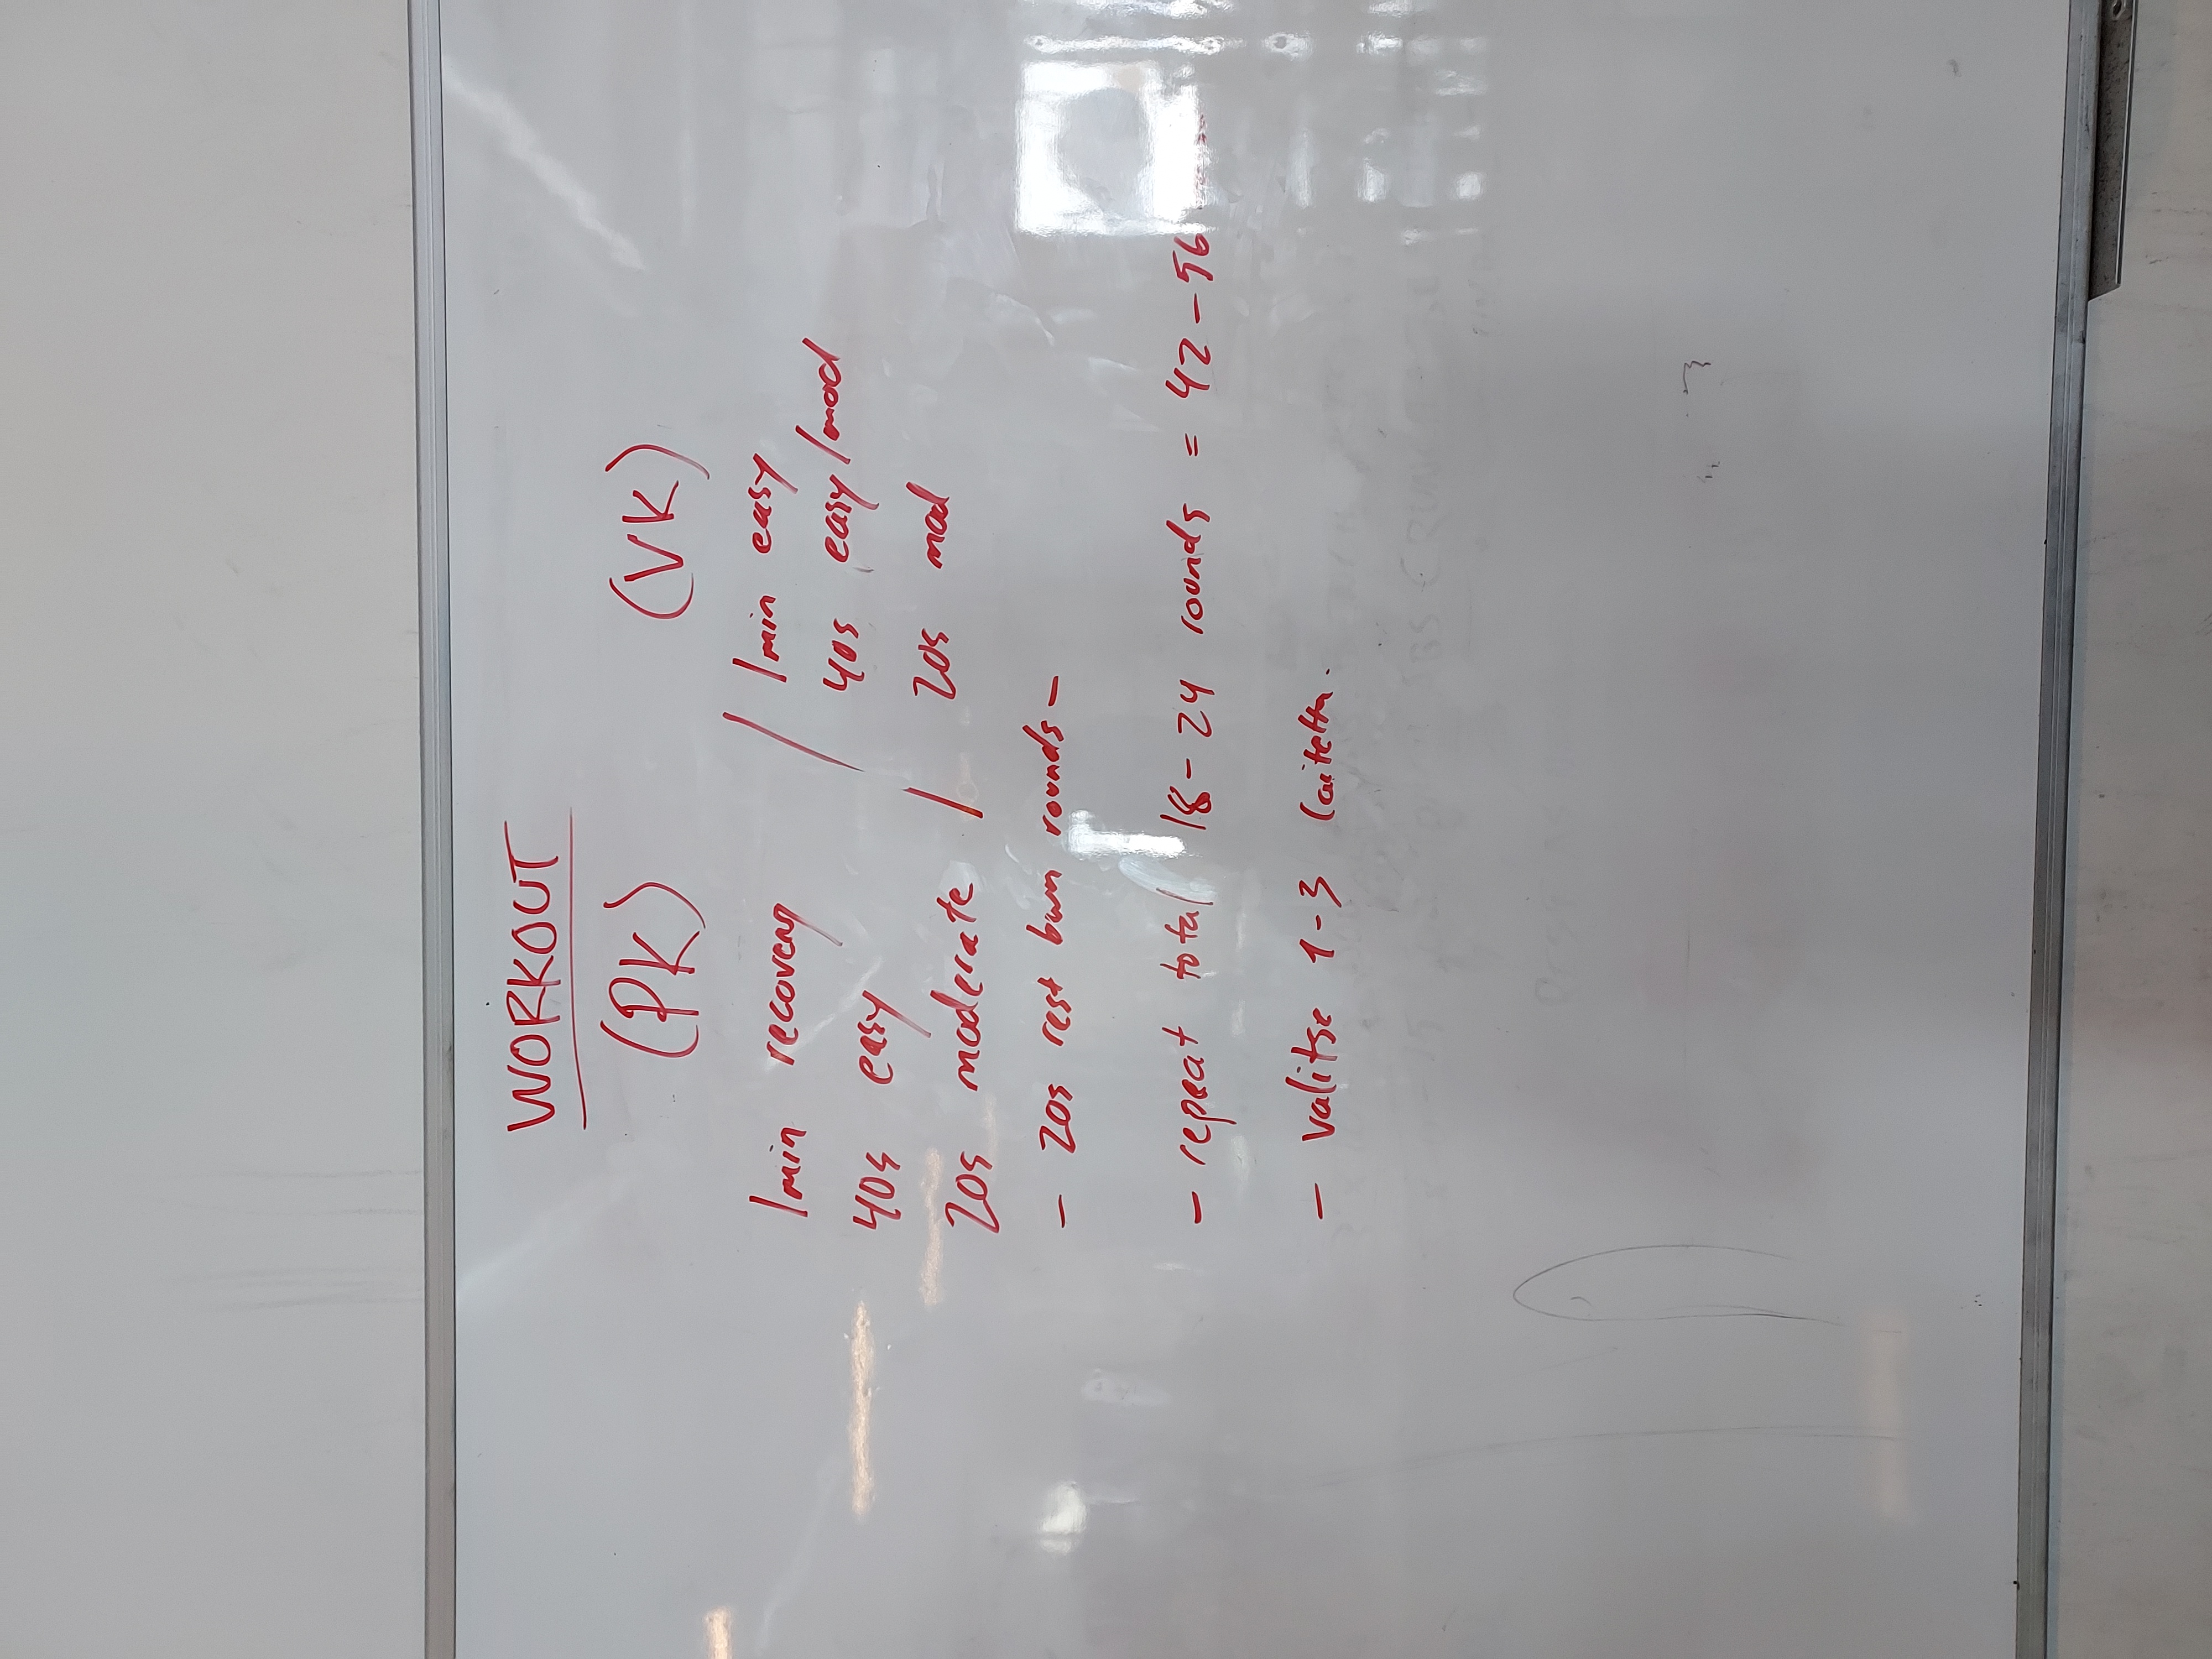 WORKOUT
(PK) (VK)
1min recovery / 1min easy
40s easy 40s easy/mod
20s moderate / 20s mod
- 20s rest bwn rounds -
- repeat total 18-24 rounds = 42-56
- valitse 1-3 laitetta.